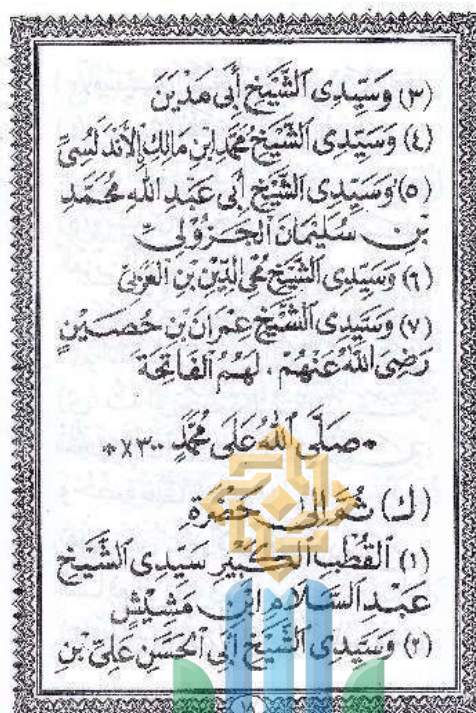 (٣) وَسَيِّدِى ٱلشَّيْخِ أَبِى مَدْيَنَ
(٤) وَسَيِّدِى ٱلشَّيْخِ مُحَمَّدِ ابْنِ مَالِكِ اِلْاَنْدَلُسِيِّ
(٥) وَسَيِّدِى ٱلشَّيْخِ أَبِى عَبْدِ اللّٰهِ مُحَمَّدِ
بْنِ سُلَيْمَانَ ٱلْجَزُوْلِيِّ
(٦) وَسَيِّدِى ٱلشَّيْخِ مُحْيِ الدِّيْنِ بْنِ الْعَرَبِيِّ
(٧) وَسَيِّدِى ٱلشَّيْخِ عِمْرَانَ بْنِ حُصَيْنٍ
رَضِىَ اللّٰهُ عَنْهُمْ . لَهُمُ الْفَاتِحَةَ
* صَلَّى اللّٰهُ عَلَى مُحَمَّدٍ ٣٠× *
(ك) ثُمَّ إِلَى حَضْرَةِ
(١) ٱلْقُطْبِ ٱلْكَبِيْرِ سَيِّدِى ٱلشَّيْخِ
عَبْدِ ٱلسَّلَامِ ابْنِ مَشِيْشٍ
(٢) وَسَيِّدِى ٱلشَّيْخِ أَبِى ٱلْحَسَنِ عَلِيِّ بْنِ
١٨